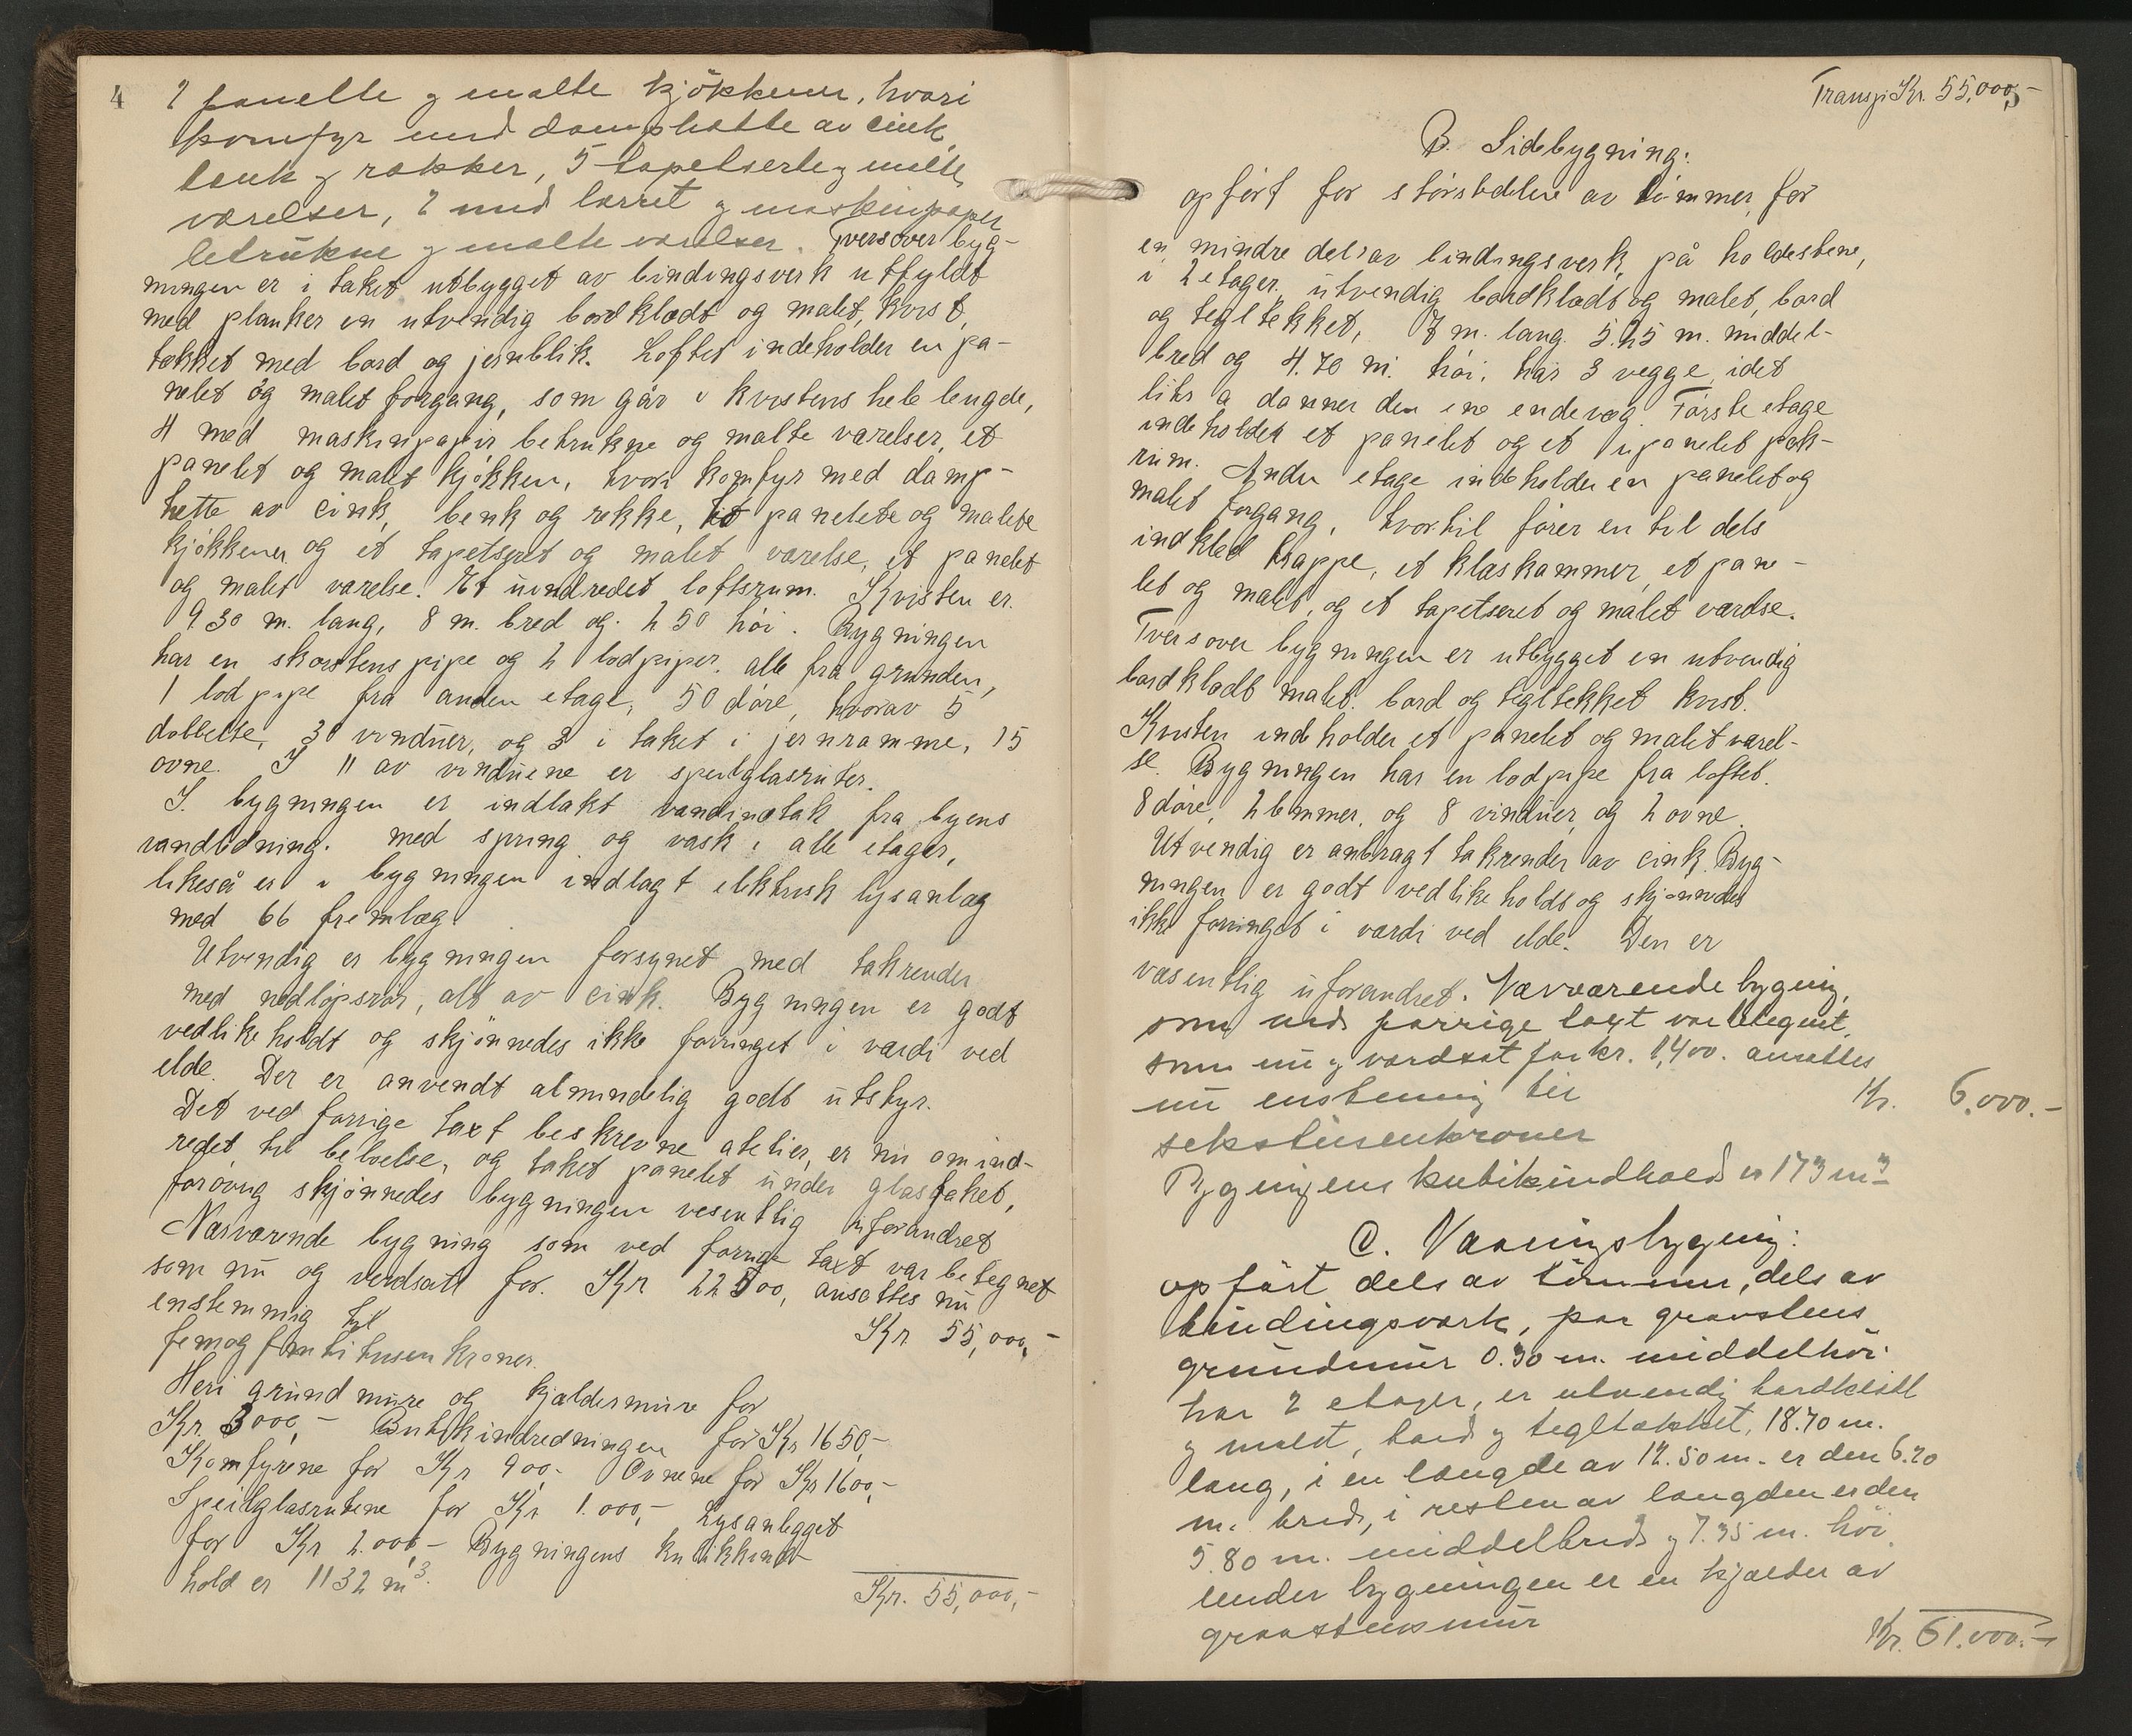 4
2 panelte og malte kjökkener, hvori
komfyr med damphatte av cink,
benk og rækker, 5 tapetserte og malte
værelser, 2 med lærret og maskinpapir
betrukne og malte værelser. Tversover byg-
ningen er i taket utbygget av bindingsverk utfyldt
med planker en utvendig bordklædt og malet, kvist,
tækket med bord og jernblik. Loftet indeholder en pa-
nelet og malet forgang, som går i kvistens hele lengde,
4 med maskinpapir betrukne og malte værelser, et
panelet og malet kjökken, hvori komfyr med damp-
hette av cink, benk og rekke, to panelete og malete
kjökkener og et tapetseret og malet værelse, et panelet
og malet værelse. Et uindredet loftsrum. Kvisten er
9.30 m. lang, 8 m. bred og 2.50 höi. Bygningen
har en skorstenspipe og 2 lodpiper, alle fra grunden,
1 lodpipe fra anden etage, 50 döre, hvorav 5
dobbelte, 30 vinduer, og 3 i taket i jernramme, 15
ovne. I 11 av vinduene er speilglasruter.
I bygningen er indlakt vandinntak fra byens
vandledning. med spring og vask i alle etager,
likeså er i bygningen indlagt elektrisk lysanlæg
med 66 fremlæg.
Utvendig er bygningen forsynet med takrender
med nedlöpsrör, alt av cink. Bygningen er godt
vedlikeholdt og skjönnedes ikke forringet i værdi ved
elde. Der er anvendt almindelig godt utstyr.
Det ved forrige taxt beskrevne atelier, er nu omind-
redet til beboelse, og taket panelet under glastaket,
forövrig skjönnedes bygningen vesentlig uforandret
Nærværende bygning som ved forrige taxt var betegnet
som nu og verdsatt for Kr 22500, ansettes nu
enstemmig til
Kr 55,000,-
femogfemti tusen kroner.
Heri grundmure og kjeldermure for
Kr. 3000,- Butikindredningen for Kr 1650,-
Komfyrene for Kr 900,- Ovnene for Kr 1600,-
Speilglasrutene for Kr 1.000,- Lysanlegget
for Kr 2.000,- Bygningens kubikkind-
hold er 1132 m³.
Kr. 55,000,-
Transp. Kr. 55,000,-
B. Sidebygning:
opfört for störstedelen av tömmer, for
en mindre del av bindingsverk, på holdestene,
i 2 etager, utvendig bordklædt og malet, bord
og tegltekket, 7 m. lang. 5.25 m. middel-
bred og 4.70 m. höi, har 3 vegge, idet
litr a danner den ene endeveg. Förste etage
indeholder et panelet og et upanelet pak-
rum. Anden etage indeholder en panelet og
malet forgang, hvortil förer en til dels
indklæd trappe, et klæskammer, et pane-
let og malet, og et tapetseret og malet værelse.
Tversover bygningen er utbygget en utvendig
bordklædt malet, bord og tegltekket kvist.
Kvisten indeholder et panelet og malet værel-
se. Bygningen har en lodpipe fra loftet.
8 döre, 2 lemmer, og 8 vinduer, og 2 ovne.
Utvendig er anbragt takrender av cink. Byg-
ningen er godt vedlikeholdt og skjönnedes
ikke forringet i værdi ved elde. Den er
væsentlig uforandret. Nærværende bygning,
som ved forrige taxt var betegnet
som nu og værdsat for kr. 1,400. ansættes
nu enstemmig til
Kr. 6.000.-
sekstusenkroner
Bygningens kubikindhold er 173 m³
C. Vaaningsbygning:
opfört dels av tömmer, dels av
bindingsverk, paa graastens
grundmur 0.30 m. middelhöi
har 2 etager, er utvendig bordklædt
og malt, bord og tegltækket, 18.70 m.
lang, i en længde av 12.50 m. er den 6.20
m. bred, i resten av længden er den
5.80 m. middelbred og 7.35 m. höi.
Under bygningen er en kjælder av
graastensmur
Kr. 61.000.-